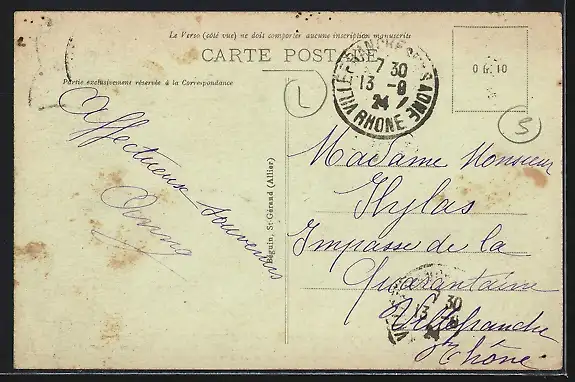 Le Verso (côté vue) ne doit comporter aucune inscription manuscrite
CARTE POSTALE
Partie exclusivement réservée à la Correspondance
VILLEFRANCHE SUR SAONE
7 30
13 - 9
24
RHONE
0 fr. 10
L
3
Affectueux souvenirs
Béguin, St-Gérand (Allier)
Madame Monsieur
Hylas
Impasse de la
Quarantaine
Villefranche
Rhône
7 30
13 - 9
24